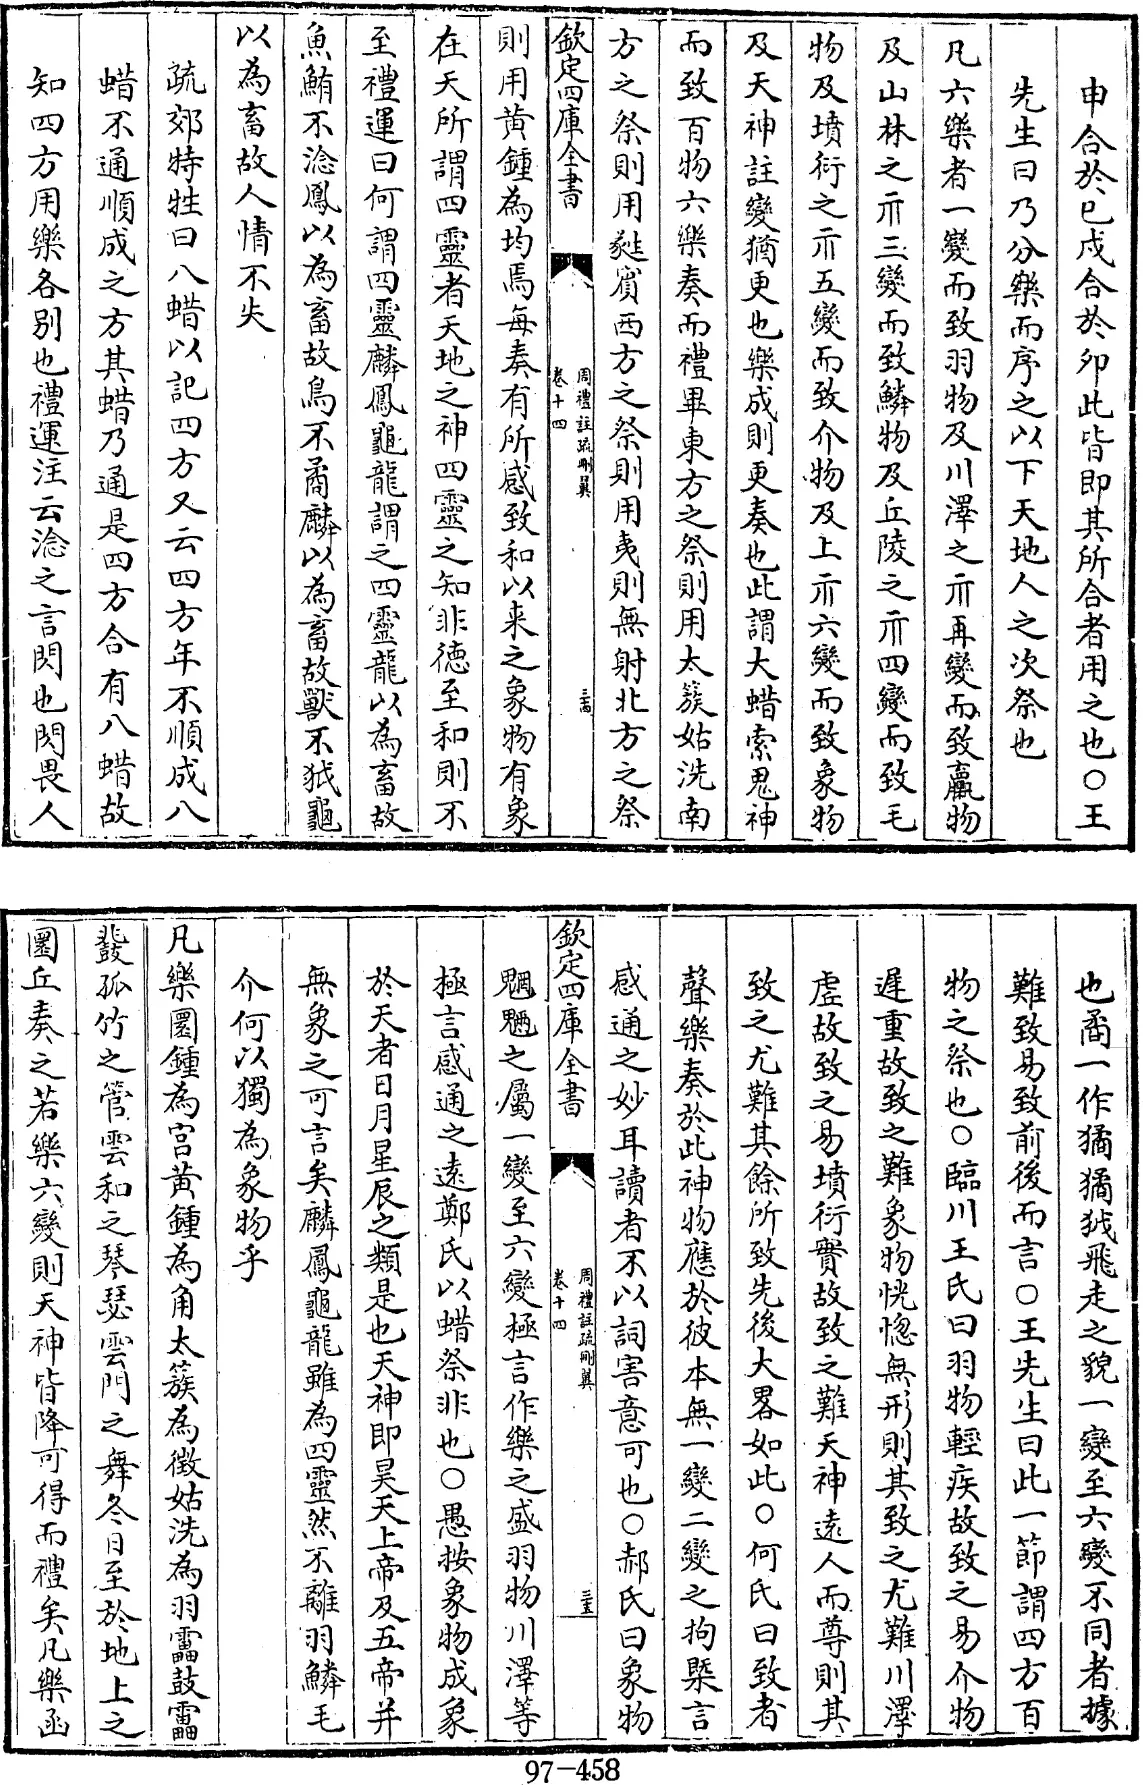 申合於巳戌合於卯此皆即其所合者用之也○王
先生曰乃分樂而序之以下天地人之次祭也
凡六樂者一變而致羽物及川澤之示再變而致臝物
及山林之示三變而致鱗物及丘陵之示四變而致毛
物及墳衍之示五變而致介物及土示六變而致象物
及天神註變猶更也樂成則更奏也此謂大蜡索鬼神
而致百物六樂奏而禮畢東方之祭則用太簇姑洗南
方之祭則用蕤賓西方之祭則用夷則無射北方之祭
欽定四庫全書
周禮註疏刪翼
卷十四
三十四
則用黄鍾為均焉每奏有所感致和以来之象物有象
在天所謂四靈者天地之神四靈之知非德至和則不
至禮運曰何謂四靈麟鳳龜龍謂之四靈龍以為畜故
魚鮪不淰鳳以為畜故鳥不矞麟以為畜故獸不狘龜
以為畜故人情不失
疏郊特牲曰八蜡以記四方又云四方年不順成八
蜡不通順成之方其蜡乃通是四方合有八蜡故
知四方用樂各别也禮運注云淰之言閃也閃畏人
也矞一作獝獝狘飛走之貌一變至六變不同者據
難致易致前後而言○王先生曰此一節謂四方百
物之祭也○臨川王氏曰羽物輕疾故致之易介物
遲重故致之難象物恍惚無形則其致之尤難川澤
虚故致之易墳衍實故致之難天神遠人而尊則其
致之尤難其餘所致先後大畧如此○何氏曰致者
聲樂奏於此神物應於彼本無一變二變之拘槩言
感通之妙耳讀者不以詞害意可也○郝氏曰象物
欽定四庫全書
周禮註疏刪翼
卷十四
三十五
魍魎之屬一變至六變極言作樂之盛羽物川澤等
極言感通之遠鄭氏以蜡祭非也○愚按象物成象
於天者日月星辰之類是也天神即昊天上帝及五帝并
無象之可言矣麟鳳龜龍雖為四靈然不離羽鱗毛
介何以獨為象物乎
凡樂圜鍾為宫黄鍾為角太簇為徵姑洗為羽靁鼓靁
鼗孤竹之管雲和之琴瑟雲門之舞冬日至於地上之
圜丘奏之若樂六變則天神皆降可得而禮矣凡樂函
97-458